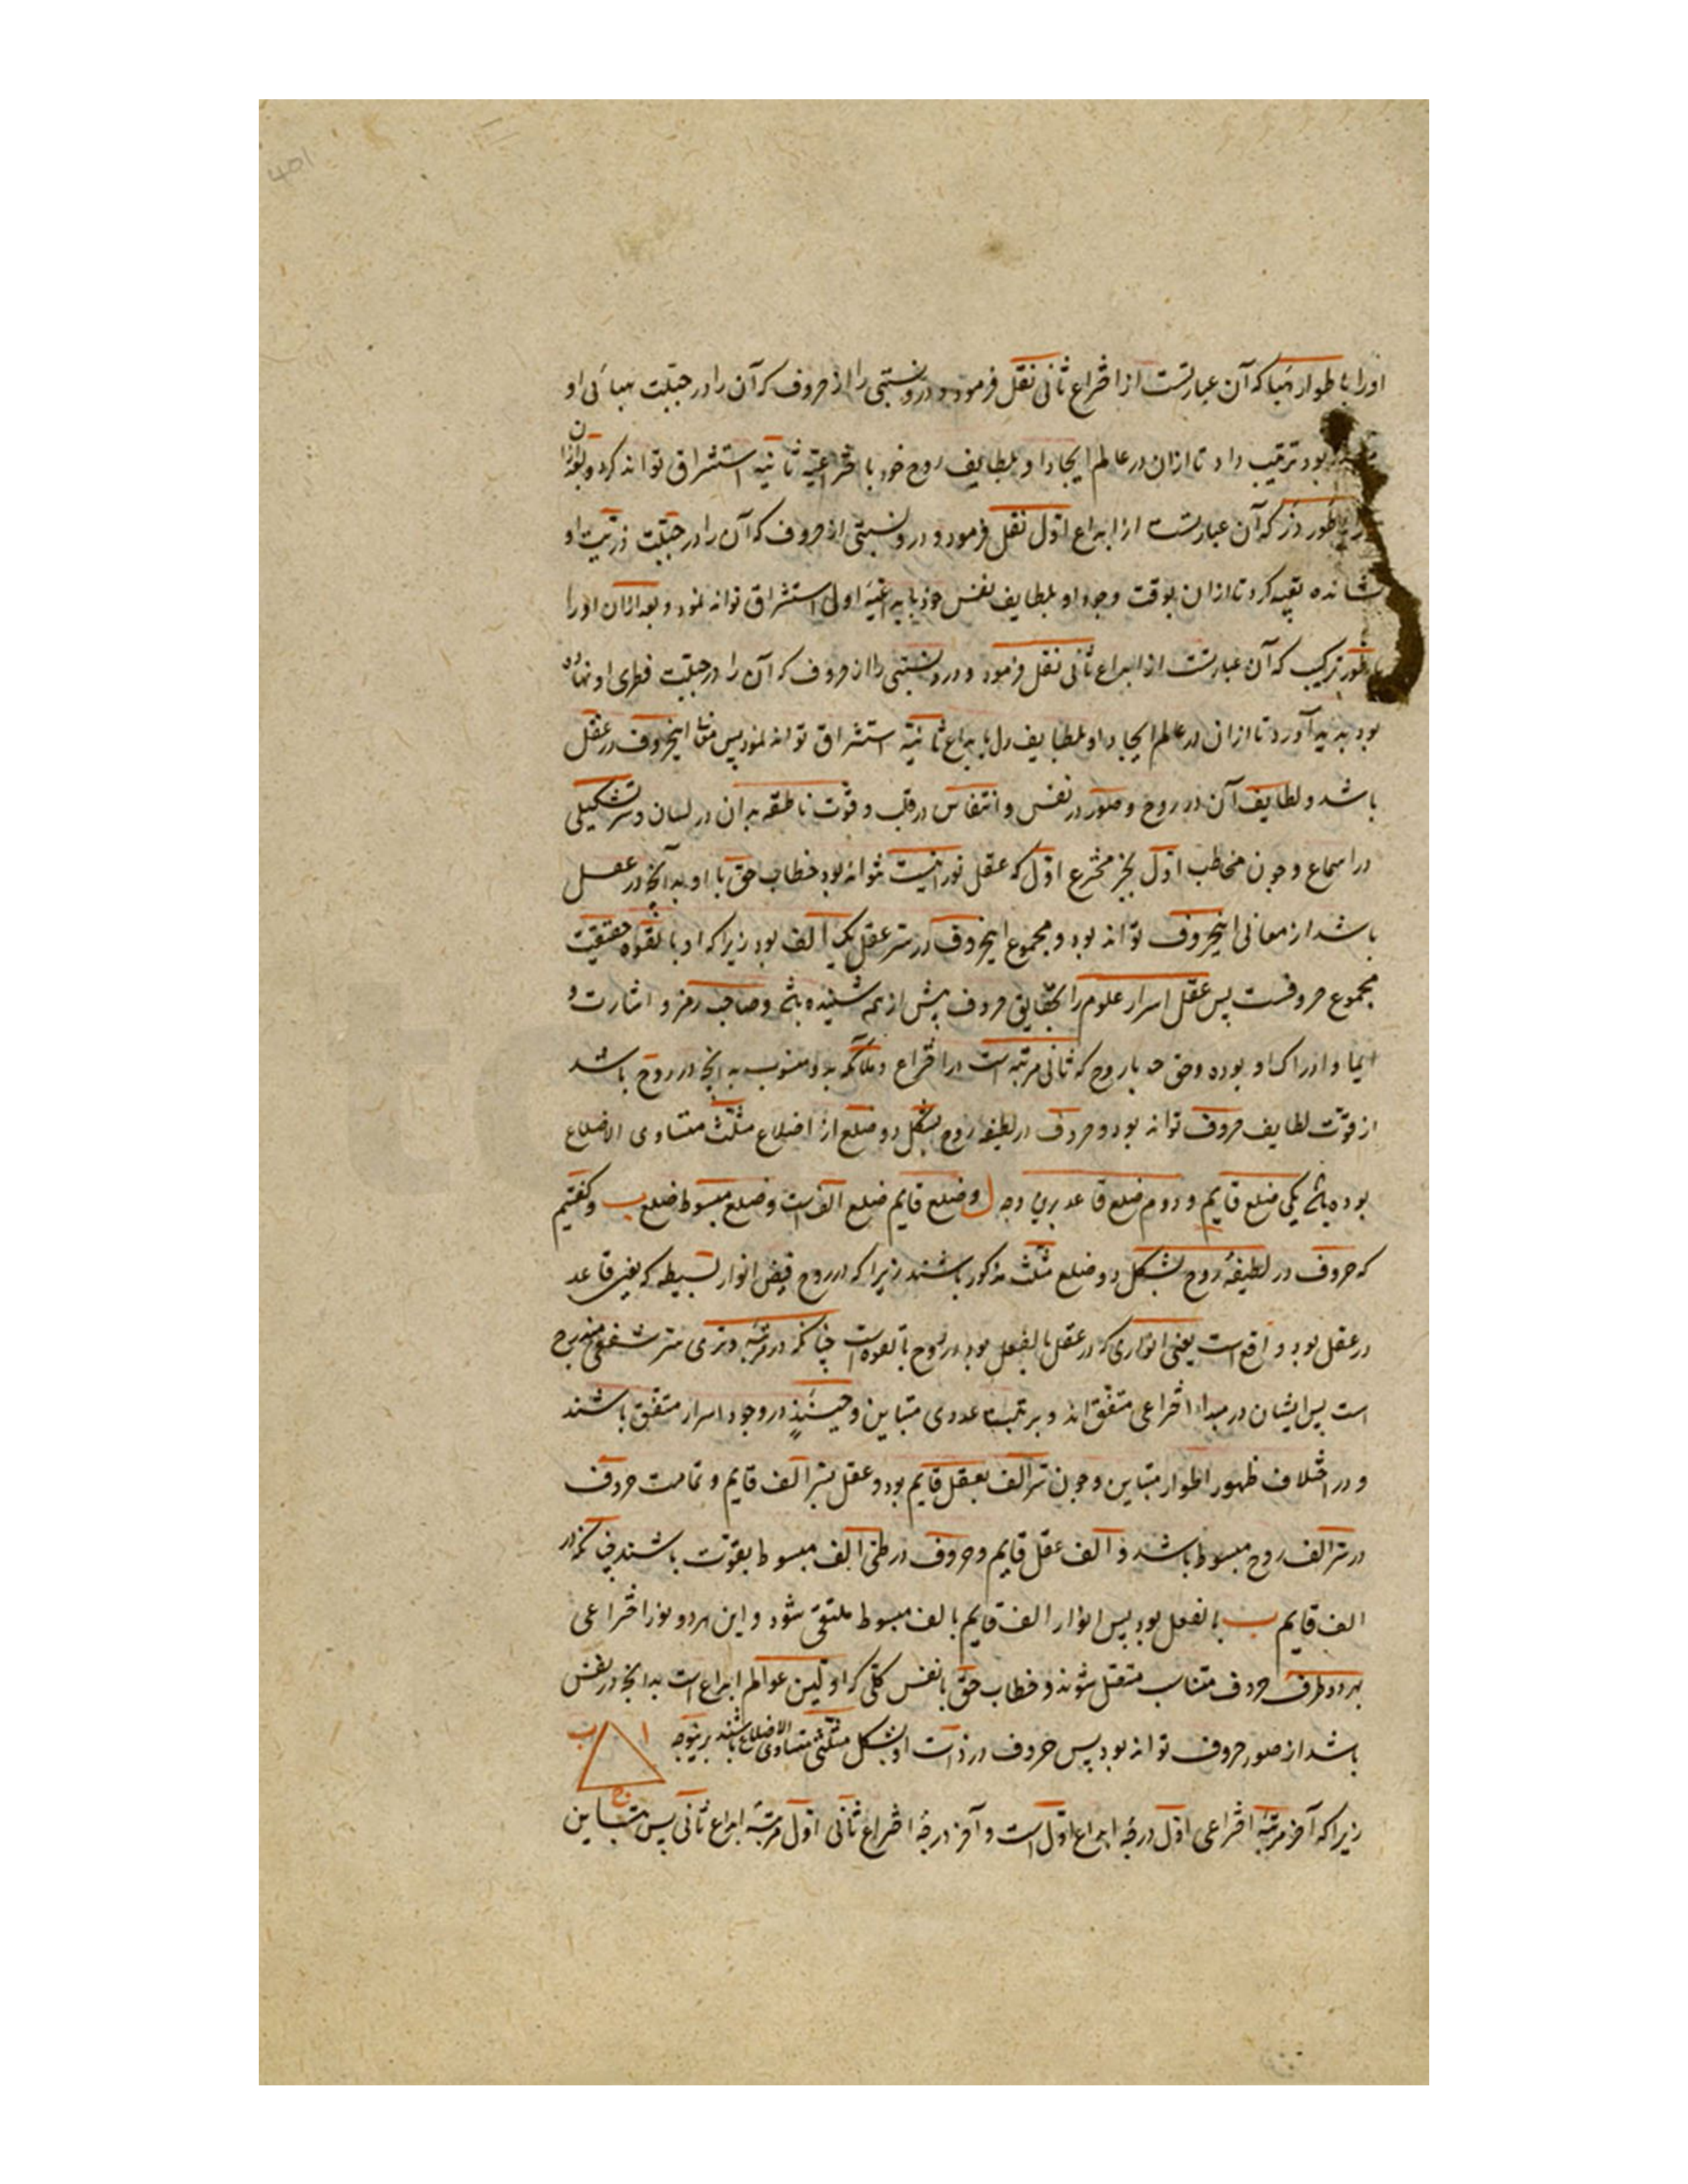 اورا باطوار هبا که آن عبارتست از اختراع ثانی نقل فرمود و درو نسبتی را از حروف که آن را در جبلت هبائی او
بود ترتیب داد تا ازان در عالم ایجاد او بلطایف روح خود با ختراعیه ثانیه استشراق تواند کرد و بعد ازان
را بطور ذر که آن عبارتست از ابداع اول نقل فرمود و درو نسبتی از حروف که آن را در جبلت ذریت او
نشانده تعبیه کرد تا ازان بوقت وجود او بلطایف نفس خود اولی استشراق تواند نمود و بعد ازان اورا
بطور ترکیب که آن عبارتست از ابداع ثانی نقل فرمود و درو نسبتی را از حروف که آن را در جبلت فطری او نهاده
بود پدید آورد تا ازان در عالم ایجاد او بلطایف دل بابداع ثانیه استشراق تواند نمود پس معانی اینحروف در عقل
باشد و لطایف آن در روح و صور در نفس و انتقاش در قلب و قوت ناطقه بدان در لسان و سر تشکیلی
در اسماع و چون مخاطب اول بجز مخترع اول که عقل نورانیست نتواند بود خطاب حق با او بدانچه در عقل
باشد از معانی اینحروف تواند بود و مجموع اینحروف در سر عقل یک الف بود زیرا که او بالقوه حقیقت
مجموع حروفست پس عقل اسرار علوم را بحقایق حروف پیش از همه شنیده باشد و صاحب رمز و اشارت و
ایما و ادراک او بوده و حق با روح که ثانی مرتبه است در اختراع بدانچه در روح باشد
از قوت لطایف حروف تواند بود و حروف در لطیفه روح بشکل دو ضلع از اضلاع مثلث متساوی الاضلاع
بوده باشد یکی ضلع قایم و دوم ضلع قاعد برین وجه ل و ضلع قایم ضلع الف است و ضلع مبسوط ضلع ب و گفتیم
که حروف در لطیفه روح بشکل دو ضلع مثلث مذکور باشند زیرا که در روح فیض انوار بسیطه که یعنی قاعد
در عقل بود واقع است یعنی انواری که در عقل بالفعل بود در روح بالقوه است چنانکه در مرتبه وتری سر شفعی مندرج
است پس ایشان در مبدأ اختراعی متفق اند و بر تثبت عددی متباین و حینئذ در وجود اسرار متفق باشند
و در اختلاف ظهور اطوار متباین و چون سر الف بعقل قایم بود و عقل بسر الف قایم و تمامت حروف
در سر الف روح مبسوط باشد و الف عقل قایم و حروف در طی الف مبسوط بقوت باشند چنانکه در
الف قایم ب بالفعل بود پس انوار الف قایم بالف مبسوط ملتقی شود و این هر دو نور اختراعی
بهر دو طرف حروف متناسب متقبل شوند و خطاب حق با نفس کلی که اولین عوالم ابداع است بدانچه در نفس
باشد از صور حروف تواند بود پس حروف در ذات او بشکل مثلثی متساوی الاضلاع باشند برینوجه ا ب ج
زیرا که آخر مرتبه اختراعی اول درجه ابداع اول است و آخر درجه اختراع ثانی اول مرتبه ابداع ثانی پس متباین